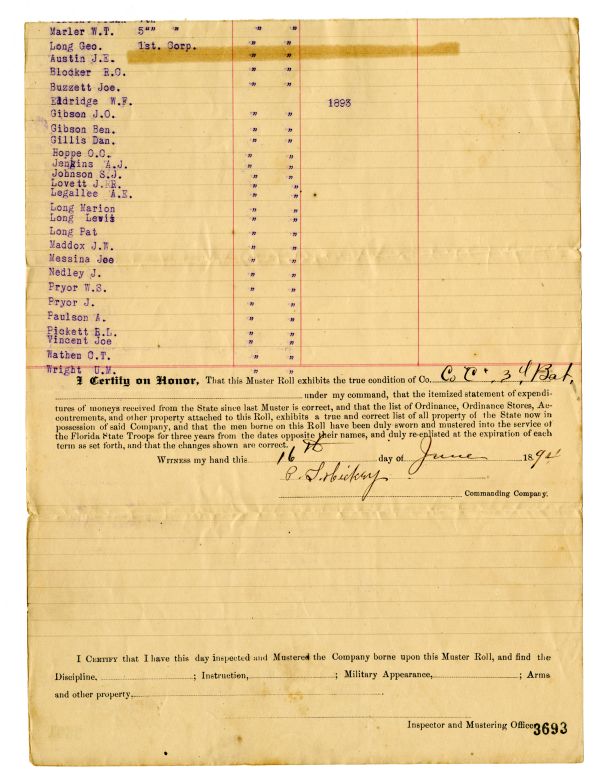 Marler W.T. 5"" " " "
Long Geo. 1st. Corp. " "
Austin J.E. " "
Blocker R.C. " "
Buzzett Joe. " "
Eldridge W.F. 1893
Gibson J.O. " "
Gibson Ben. " "
Gillis Dan. " "
Hoppe O.C. " "
Jenkins A.J. " "
Johnson S.J. " "
Lovett J.RR. " "
Legallee A.E. " "
Long Marion " "
Long Lewis " "
Long Pat " "
Maddox J.W. " "
Messina Joe " "
Nedley J. " "
Pryor W.S. " "
Pryor J. " "
Paulson A. " "
Pickett R.L. " "
Vincent Joe " "
Wathen C.T. " "
Wright U.M. " "
I Certify on Honor, That this Muster Roll exhibits the true condition of Co. Co "C" 3d Bat,
under my command, that the itemized statement of expendi-
tures of moneys received from the State since last Muster is correct, and that the list of Ordinance, Ordinance Stores, Ac-
coutrements, and other property attached to this Roll, exhibits a true and correct list of all property of the State now in
possession of said Company, and that the men borne on this Roll have been duly sworn and mustered into the service of
the Florida State Troops for three years from the dates opposite their names, and duly re-enlisted at the expiration of each
term as set forth, and that the changes shown are correct.
Witness my hand this 16th day of June 1894
Commanding Company.
I Certify that I have this day inspected and Mustered the Company borne upon this Muster Roll, and find the
Discipline, ; Instruction, ; Military Appearance, ; Arms
and other property,
Inspector and Mustering Officer
3693